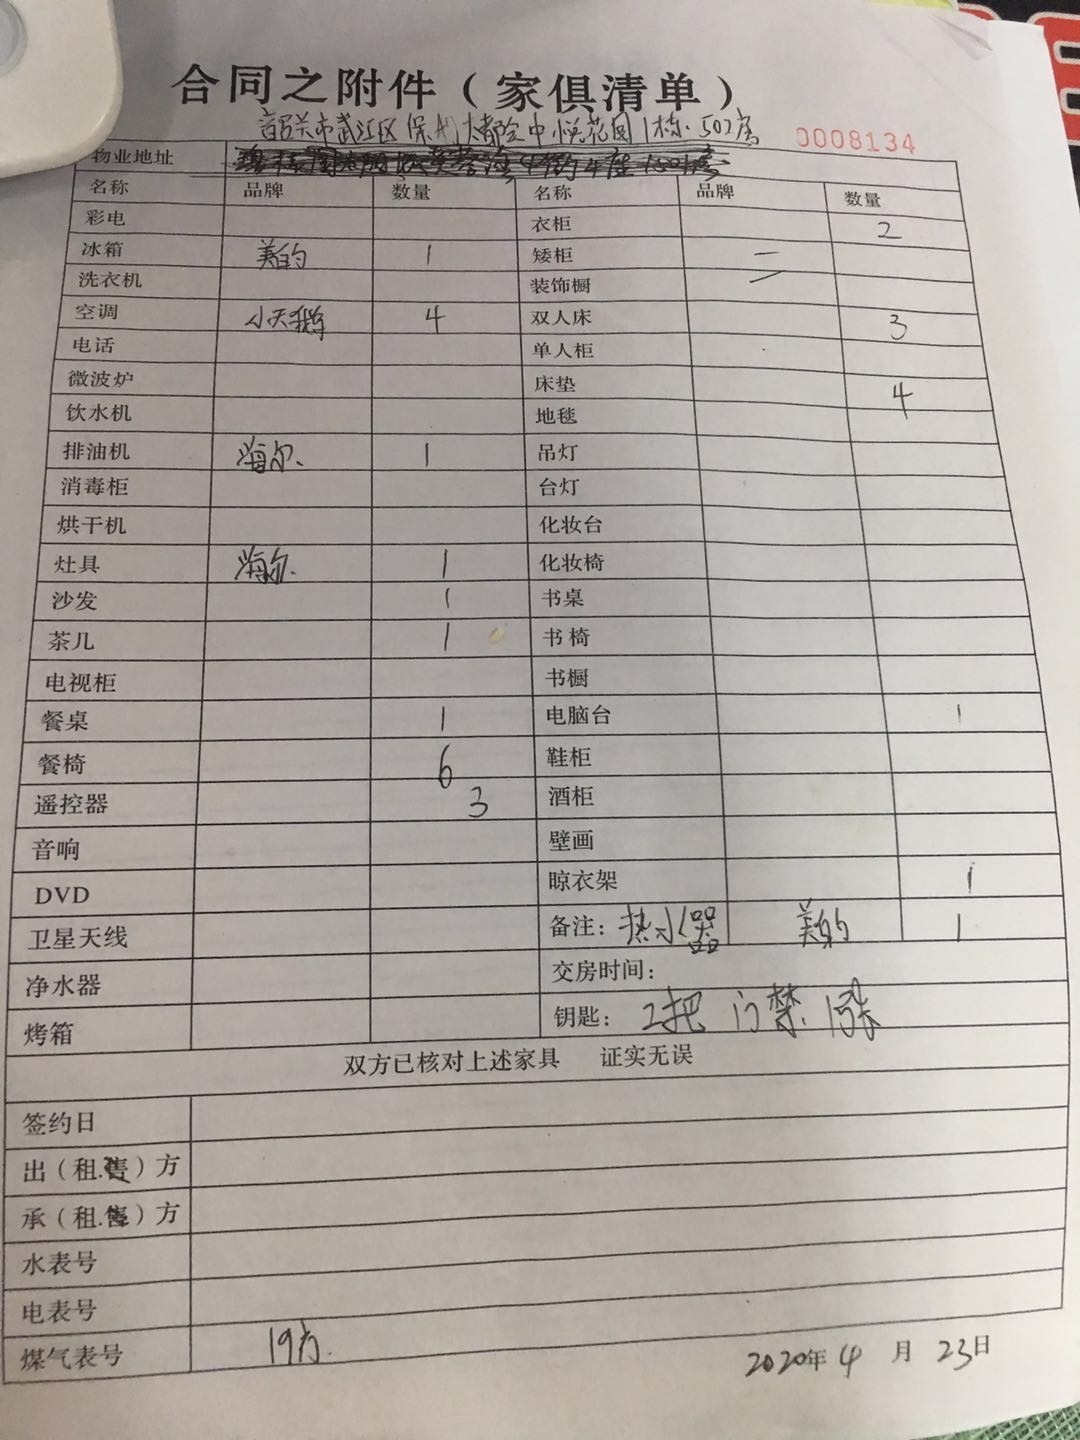 合同之附件（家俱清单）
韶关市武江区保利大都会中悦花园1栋.502房
0008134
物业地址
名称 品牌 数量 名称 品牌 数量
彩电 衣柜 2
冰箱 美的 1 矮柜 二
洗衣机 装饰橱
空调 小天鹅 4 双人床 3
电话 单人柜
微波炉 床垫 4
饮水机 地毯
排油机 海尔. 1 吊灯
消毒柜 台灯
烘干机 化妆台
灶具 海尔. 1 化妆椅
沙发 1 书桌
茶几 1 书椅
电视柜 书橱
餐桌 1 电脑台 1
餐椅 6 鞋柜
遥控器 3 酒柜
音响 壁画
DVD 晾衣架 1
卫星天线 备注：热水器 美的 1
净水器 交房时间：
烤箱 钥匙：2把 门禁 1张
双方已核对上述家具 证实无误
签约日
出（租.售）方
承（租.售）方
水表号
电表号
煤气表号 19方.
2020年4月23日